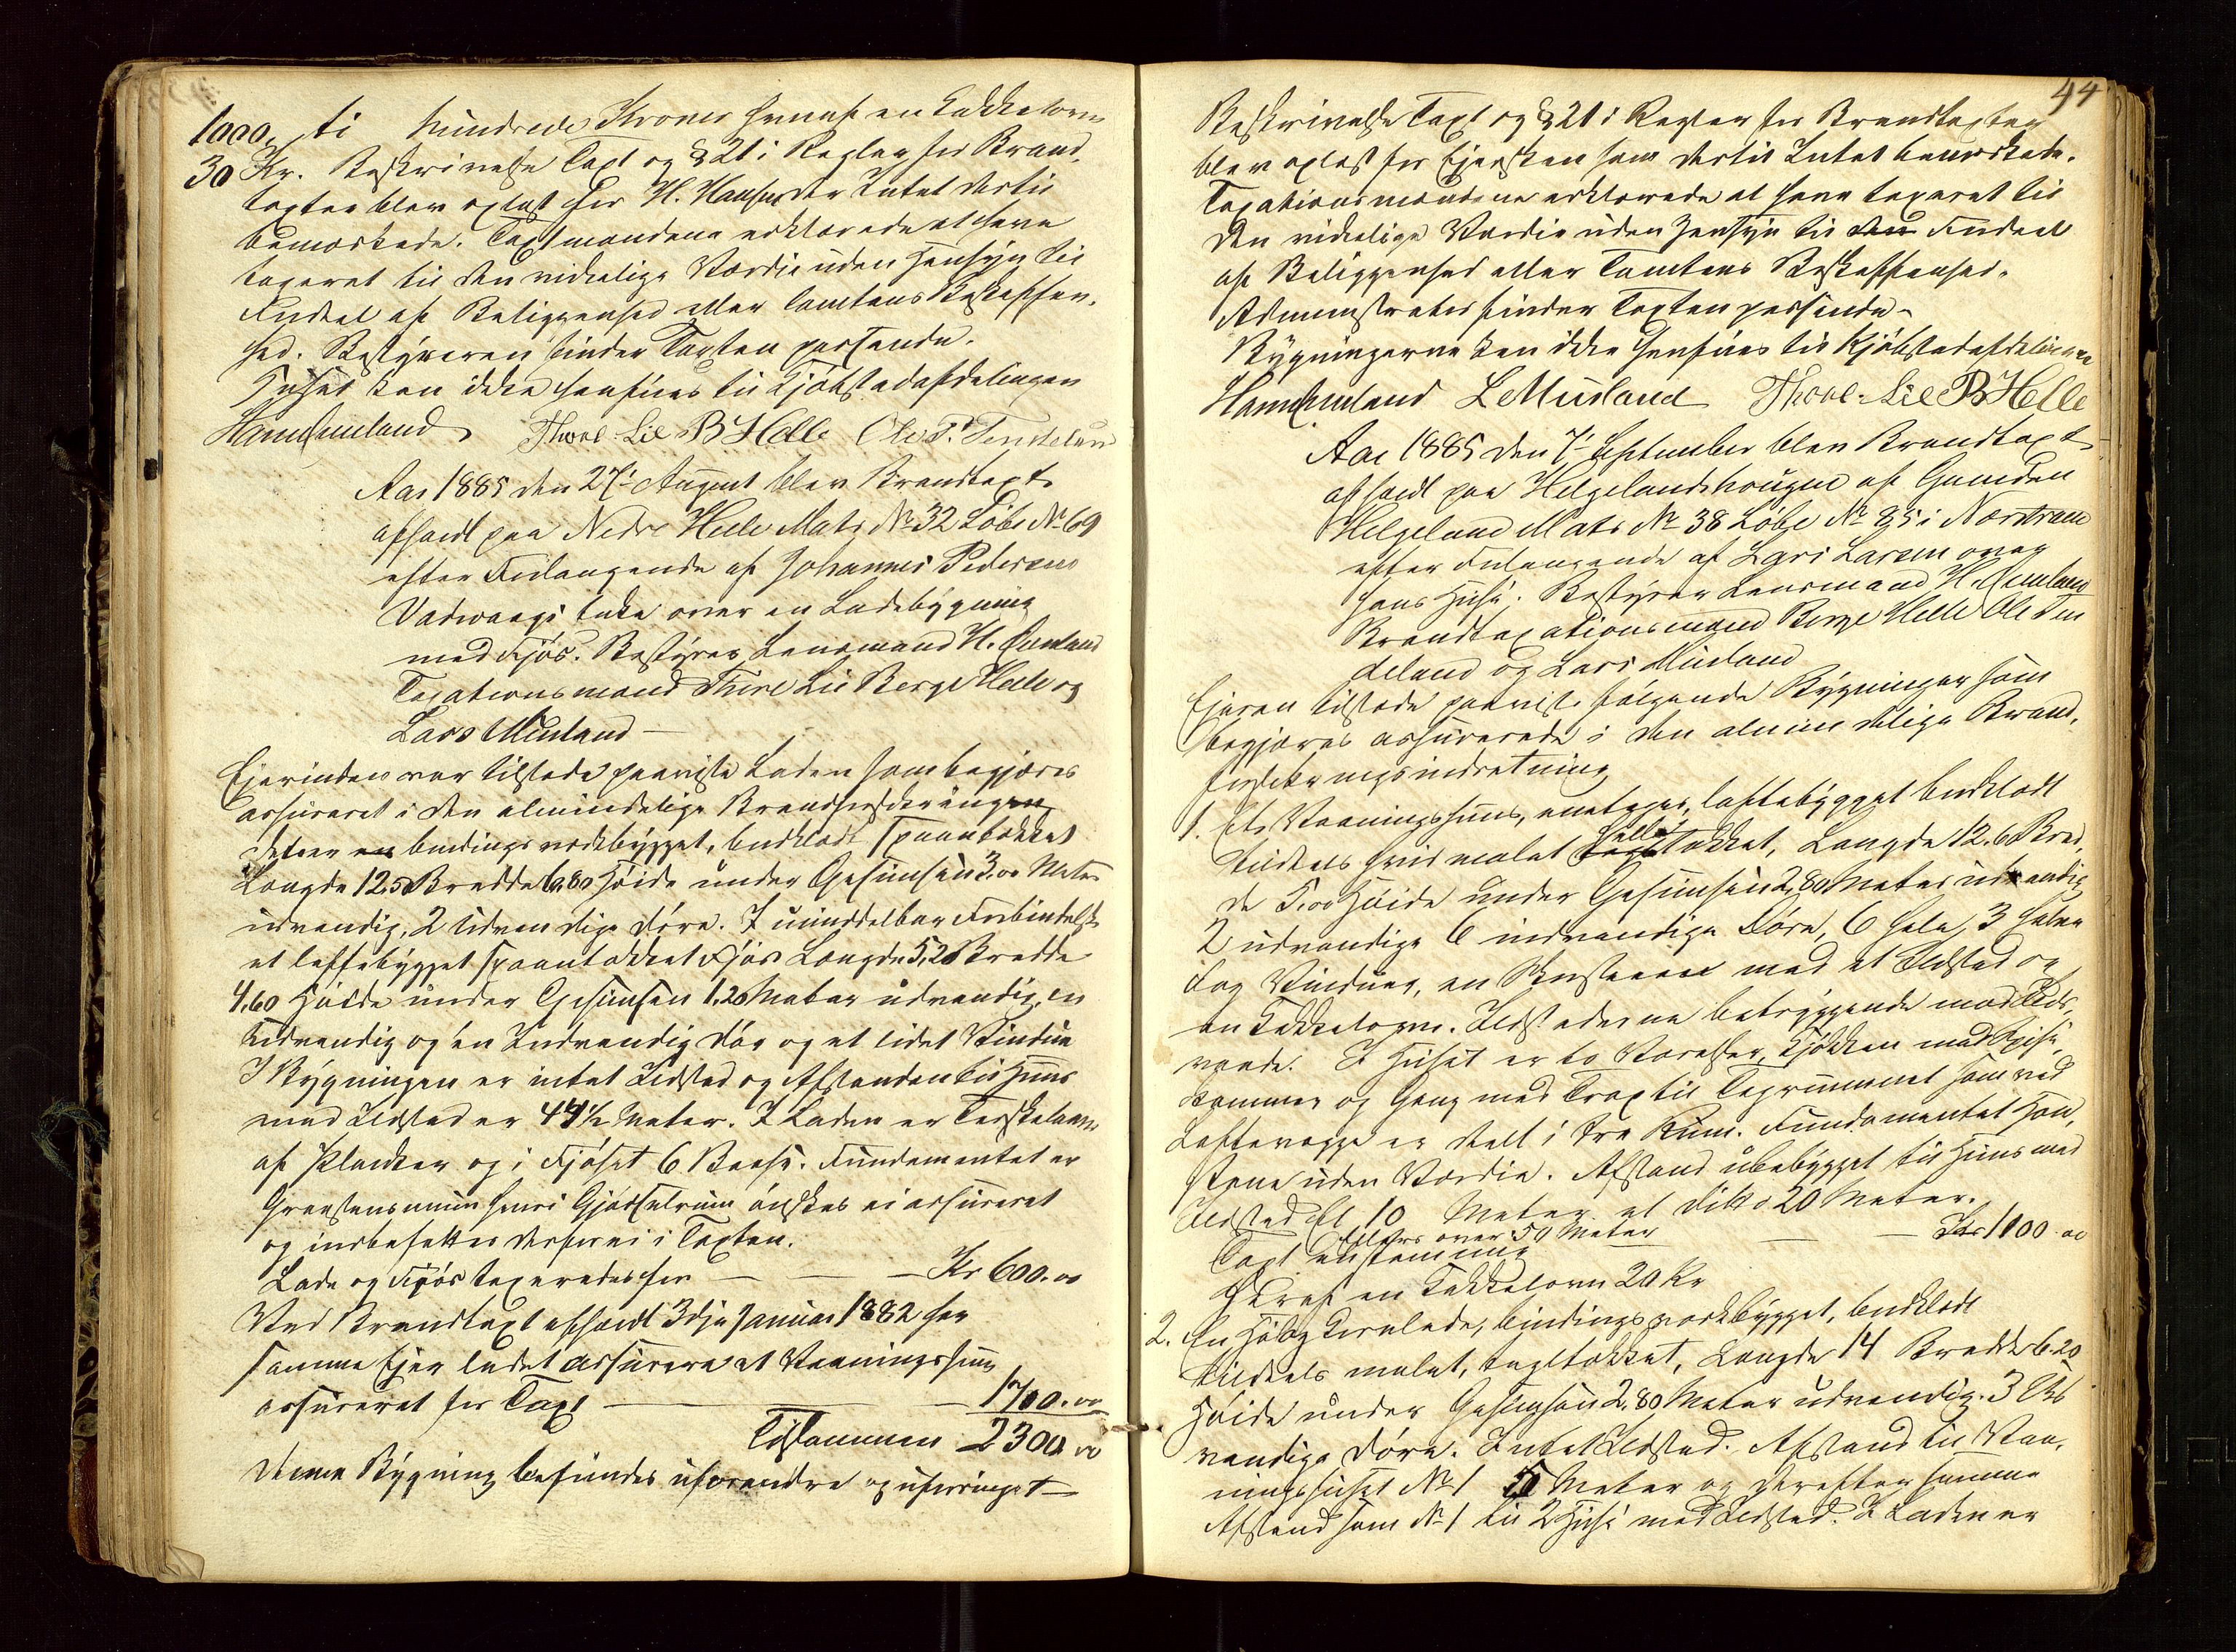 1000, ti hundrede Kroner heraf en Kakkelovn
30 Kr. Beskrivelse Taxt og § 21 i Regler for Brand-
taxter blev oplæst for H. Hansen der Intet dertil
bemærkede. Taxtmændene erklærede at have
taxeret til den virkelige Værdie uden Hensyn til
Fordeel af Beliggenhed eller Tomtens Beskaffen-
hed. Bestyreren finder Taxten passende.
Huset kan ikke henføres til Kjøbstadafdelingen
Thore Lie B Helle Ole T. Tendeland
Aar 1885 den 27de August blev Brandtaxt
afholdt paa Nedre Helle Matr № 32 Løbe № 69
efter Forlangende af Johannes Pedersens
Enke over en Ladebygning
med Fjøs. Bestyrer Lensmand H.
Taxationsmænd Thore Lie Berge Helle og
Lars Musland
Ejerinden var tilstede paaviste Laden som begjæres
assureret i den almindelige Brandforsikring
det er en bindingsverkbygget, bordklædt spaantækket
Længde 12,50 Bredde 6,80 Høide under Gesimsen 3,00 Meter
udvendig, 2 udvendige Døre. I umiddelbar Forbindelse
et loftebygget spaantækket Fjøs Længde 5,20 Bredde
4,60 Høide under Gesimsen 1,20 Meter udvendig, en
Udvendig og en Indvendig Dør og et lidet Vindue
I Bygningen er intet Ildsted og Afstanden til Huus
med Ildsted er 44½ Meter. I Laden er Tærskelaave
af Planker og i Fjøset 6 Baase. Fundamentet er
Graastensmuur hvori Gjødselrum ønskes ei assureret
og indbefattes derfor ei i Taxten.
Lade og Fjøs taxeredes for — — — Kr 600.00
Ved Brandtaxt afholdt 3die Januar 1882 har
samme Ejer ladet assurere et Vaaningshuus
assureret for Taxt — — 1700.00
Tilsammen 2300.00
Denne Bygning befindes uforandre og uforringet —
44
Beskrivelse Taxt og § 21 i Regler for Brandtaxter
blev oplæst for Ejersken som dertil Intet bemærkede.
Taxationsmændene erklærede at have taxeret til
den virkelige Værdie uden Hensyn til Fordeel
af Beliggenhed eller Tomtens Beskaffenhed.
Administrator finder Taxten passende.
Bygningerne kan ikke henføres til Kjøbstadafdelingen
L Musland Thore Lie B Helle
Aar 1885 den 7de September blev Brandtaxt
afholdt paa Helgelandshougen af Gaarden
Helgeland Matr № 38 Løbe № 85 i Nærstrand
efter Forlangende af Lars Larsen over
hans Huse. Bestyrer Lensmand H.
Brandtaxationsmænd Berge Helle Ole Ten
deland og Lars Musland
Ejeren tilstede paaviste følgende Bygninger som
begjæres assurerede i den almindelige Brand-
forsikringsindretning
1. Et Vaaningshuus, eenetages, loftebygget bordklædt
tildeels hvid malet helletækket, Længde 12.60 Bred-
de 5.00 Høide under Gesimsen 2,80 Meter udvendig
2 udvendige 6 indvendige Døre, 6 hele 3 halve
Fag Vinduer, en Skorsteen med et Ildsted og
en Kakkelovn. Ildstederne betryggende mod Ilds-
vaade. I Huset er to Værelser, Kjøkken med Spise-
kammer og Gang med Trap til Tagrummet som ved
Loftevægge er deelt i tre Rum. Fundamentet
stene uden Værdie. Afstand ubebygget til Huus med
Ildsted Et 10 Meter et ditto 20 Meter.
ellers over 50 Meter
Taxt enstemmig — — Kr 1100.00
Heraf en Kakkelovn 20 Kr
2. En Høe og Kornlade, bindingsverkbygget, bordklædt
tildeels malet, tagltækket, Længde 14 Bredde 6.20
Høide under Gesimsen 2,80 Meter udvendig. 3 Ud-
vendige Døre. Intet Ildsted. Afstand til Vaa-
ningshuset № 1 Meter og derefter samme
Afstand som № 1 til 2 Huse med Ildsted. I Laden er